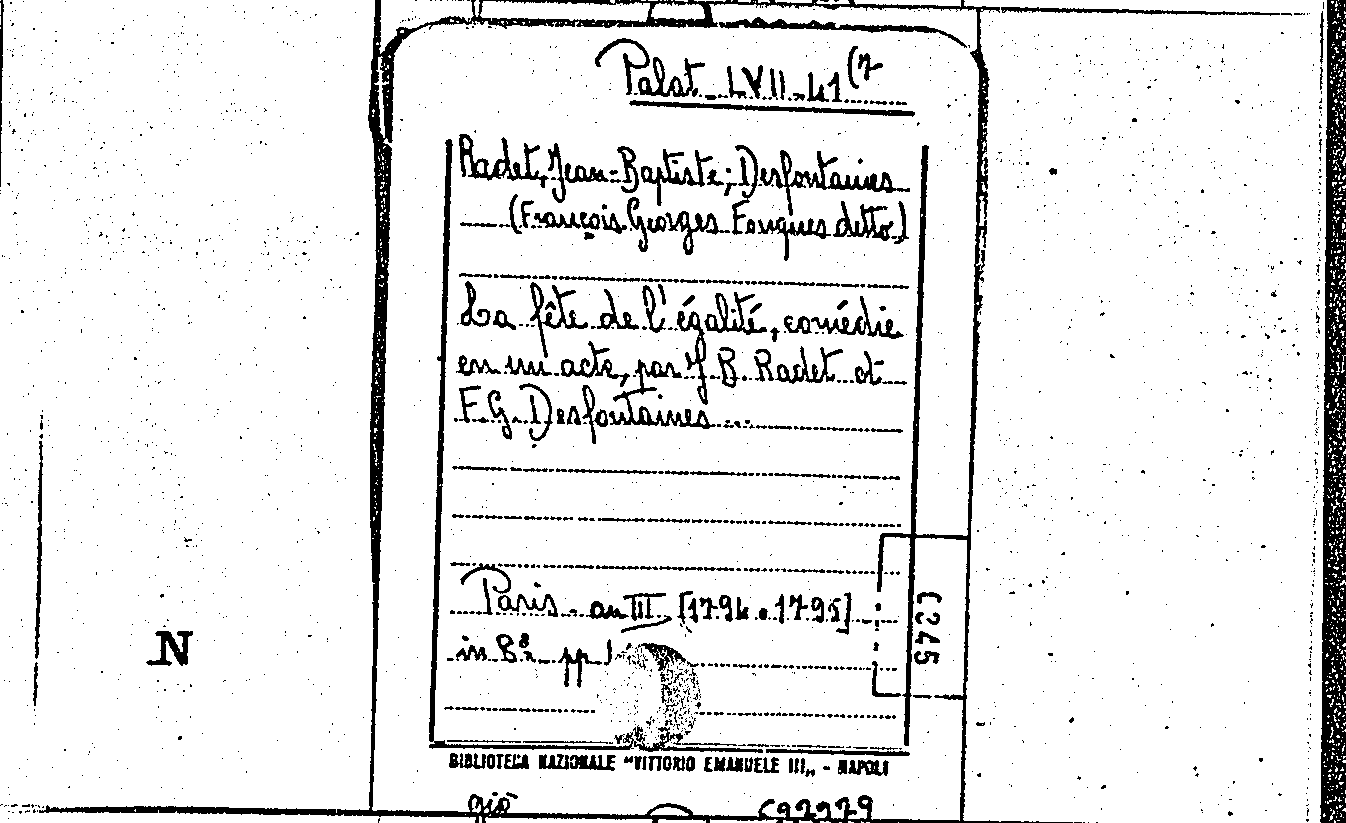 Palat. LVII-41(7
Radet, Jean-Baptiste; Desfontaines
(François Georges Fouques detto)
La fête de l'égalité, comédie
en un acte, par J B. Radet et
F.G. Desfontaines...
Paris. an III [1794-1795]
in 8º pp
C245
N
BIBLIOTECA NAZIONALE "VITTORIO EMANUELE III„ - NAPOLI
già